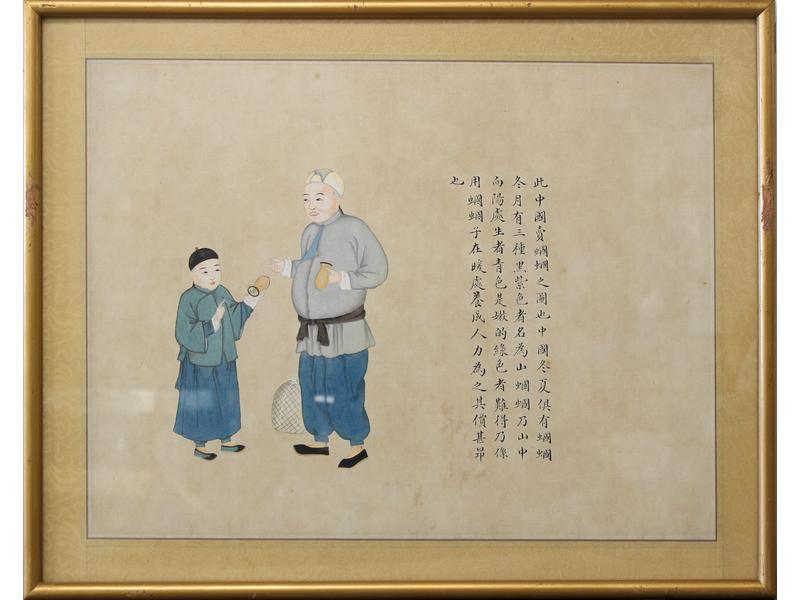 此中國賣蟈蟈之圖也中國冬夏俱有蟈蟈
冬月有三種黑紫色者名為山蟈蟈乃山中
向陽處生者青色是嫩的綠色者難得乃係
用蟈蟈子在暖處養成人力為之其價甚昂
也